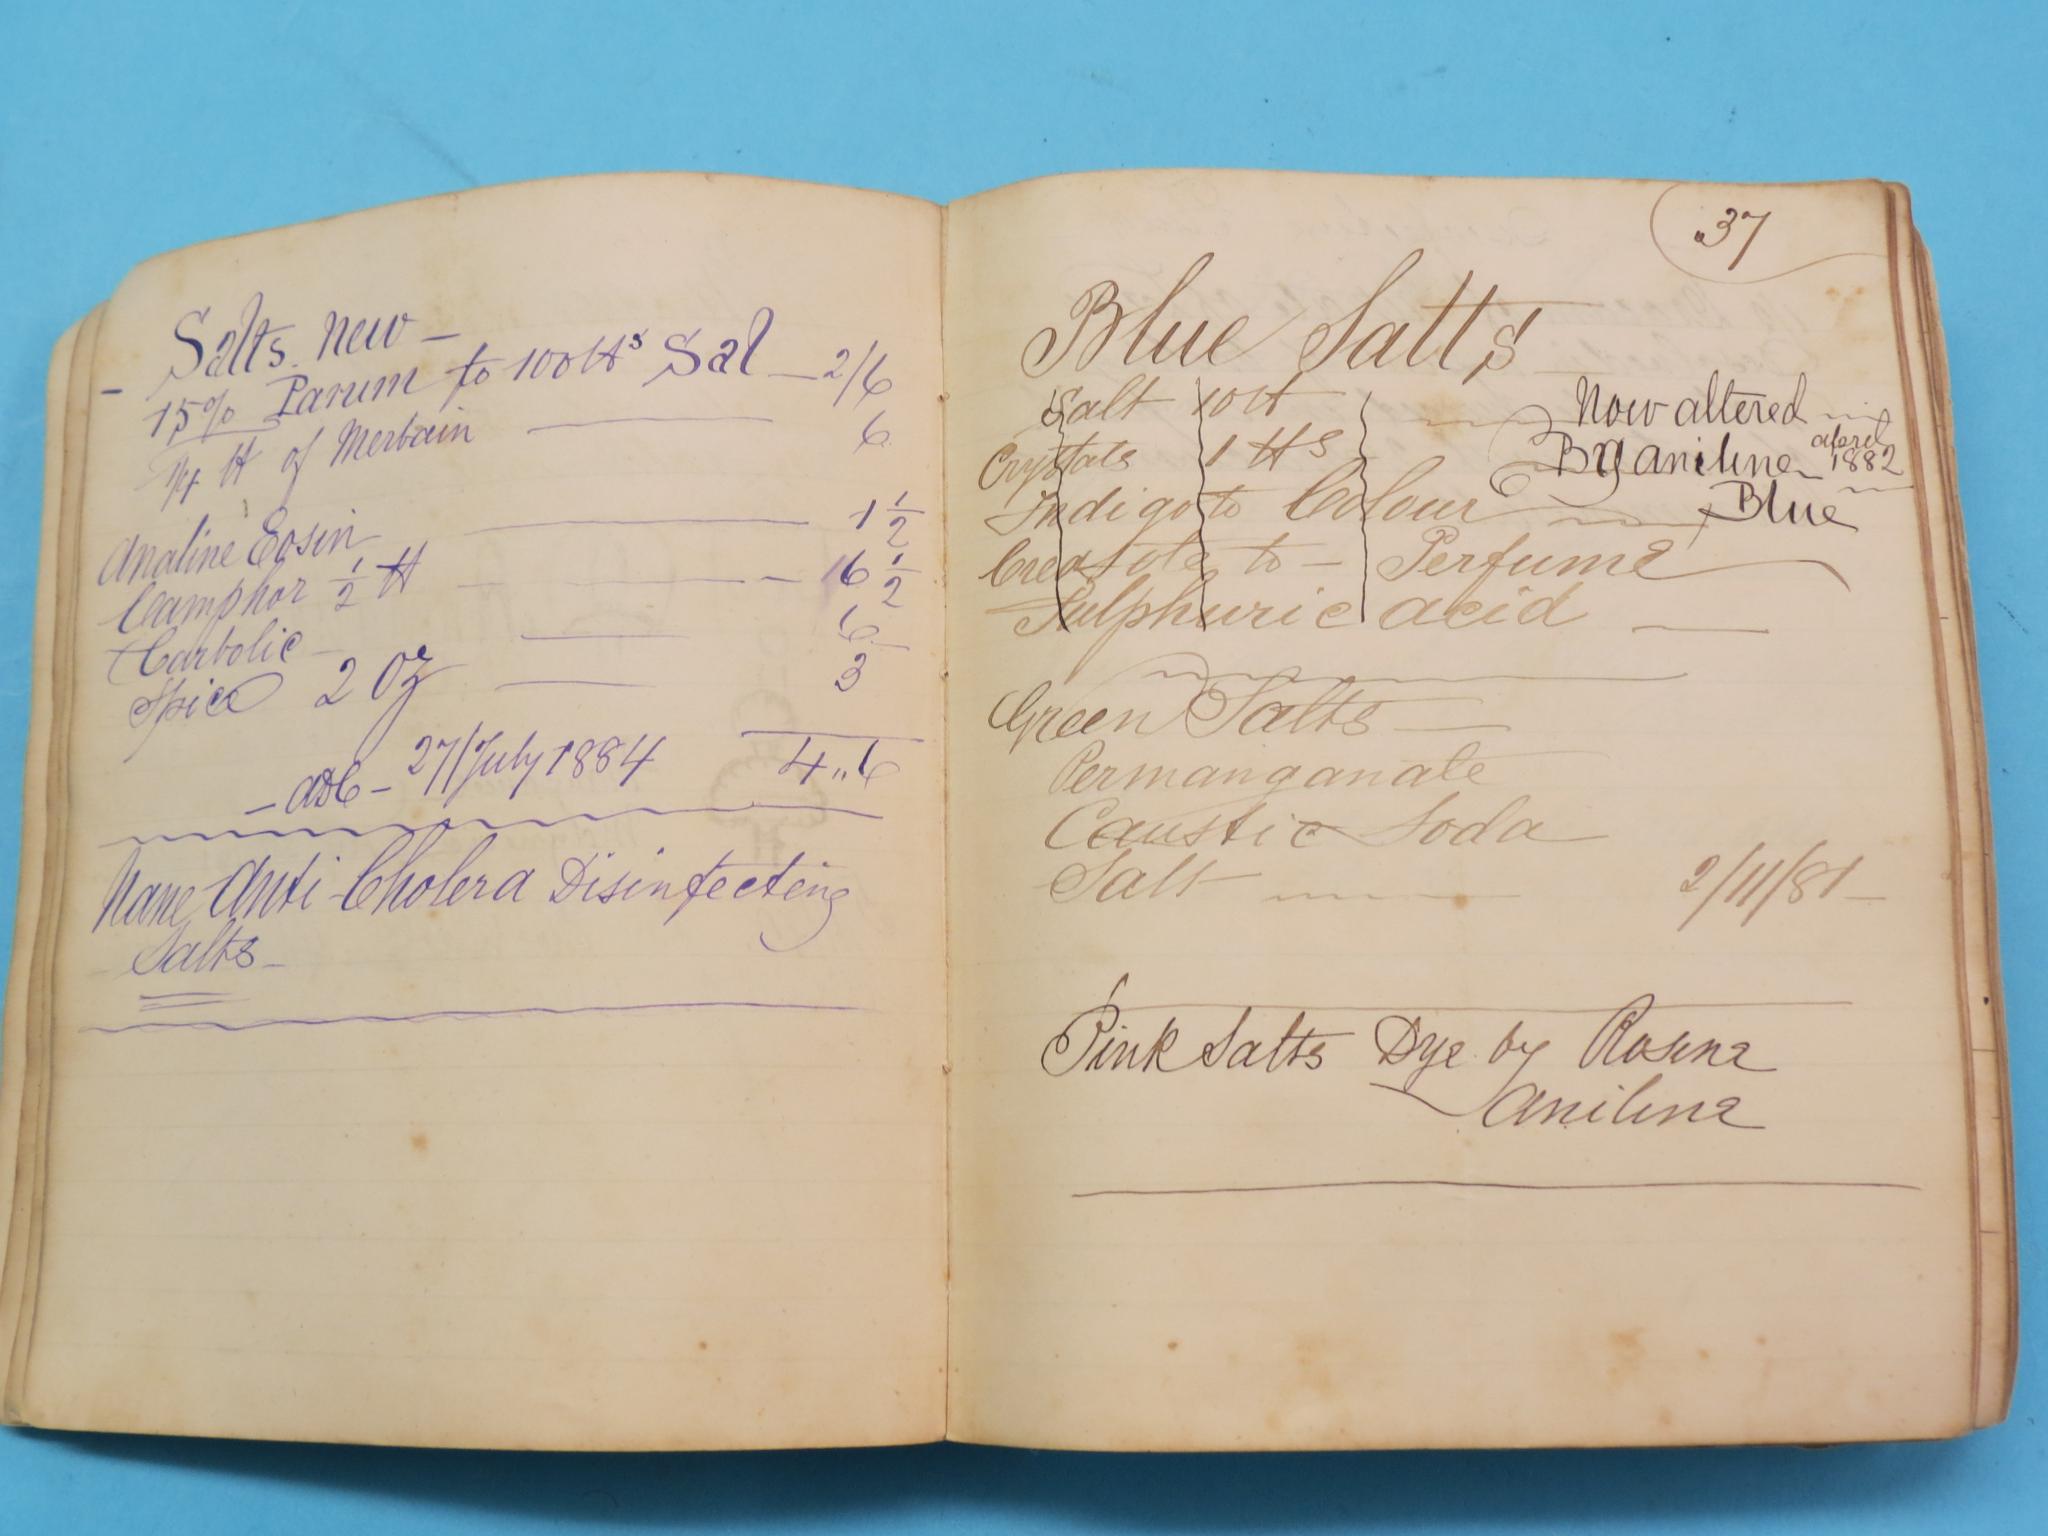 Salts. New –
– 15% Parum to 100 lbs Sal – 2/6
1/4 lb of Merbain — 6
Analine Eosin — 1 1/2
Camphor 1/2 lb — 16 1/2
Carbolic – — 6
Spice 2 Oz — 3
– – 27/July 1884 4,,6
Name Anti-Cholera Disinfecting
Salts –
37
Blue Salts
Salt 10 lb — Now altered
Crystals 1 lbs By aniline altered 1882
Indigo to Colour — Blue
Creasote to – Perfume
Sulphuric acid —
Green Salts —
Permanganate
Caustic Soda
Salt — 2/11/81 –
Pink Salts Dye by Rosine
Aniline